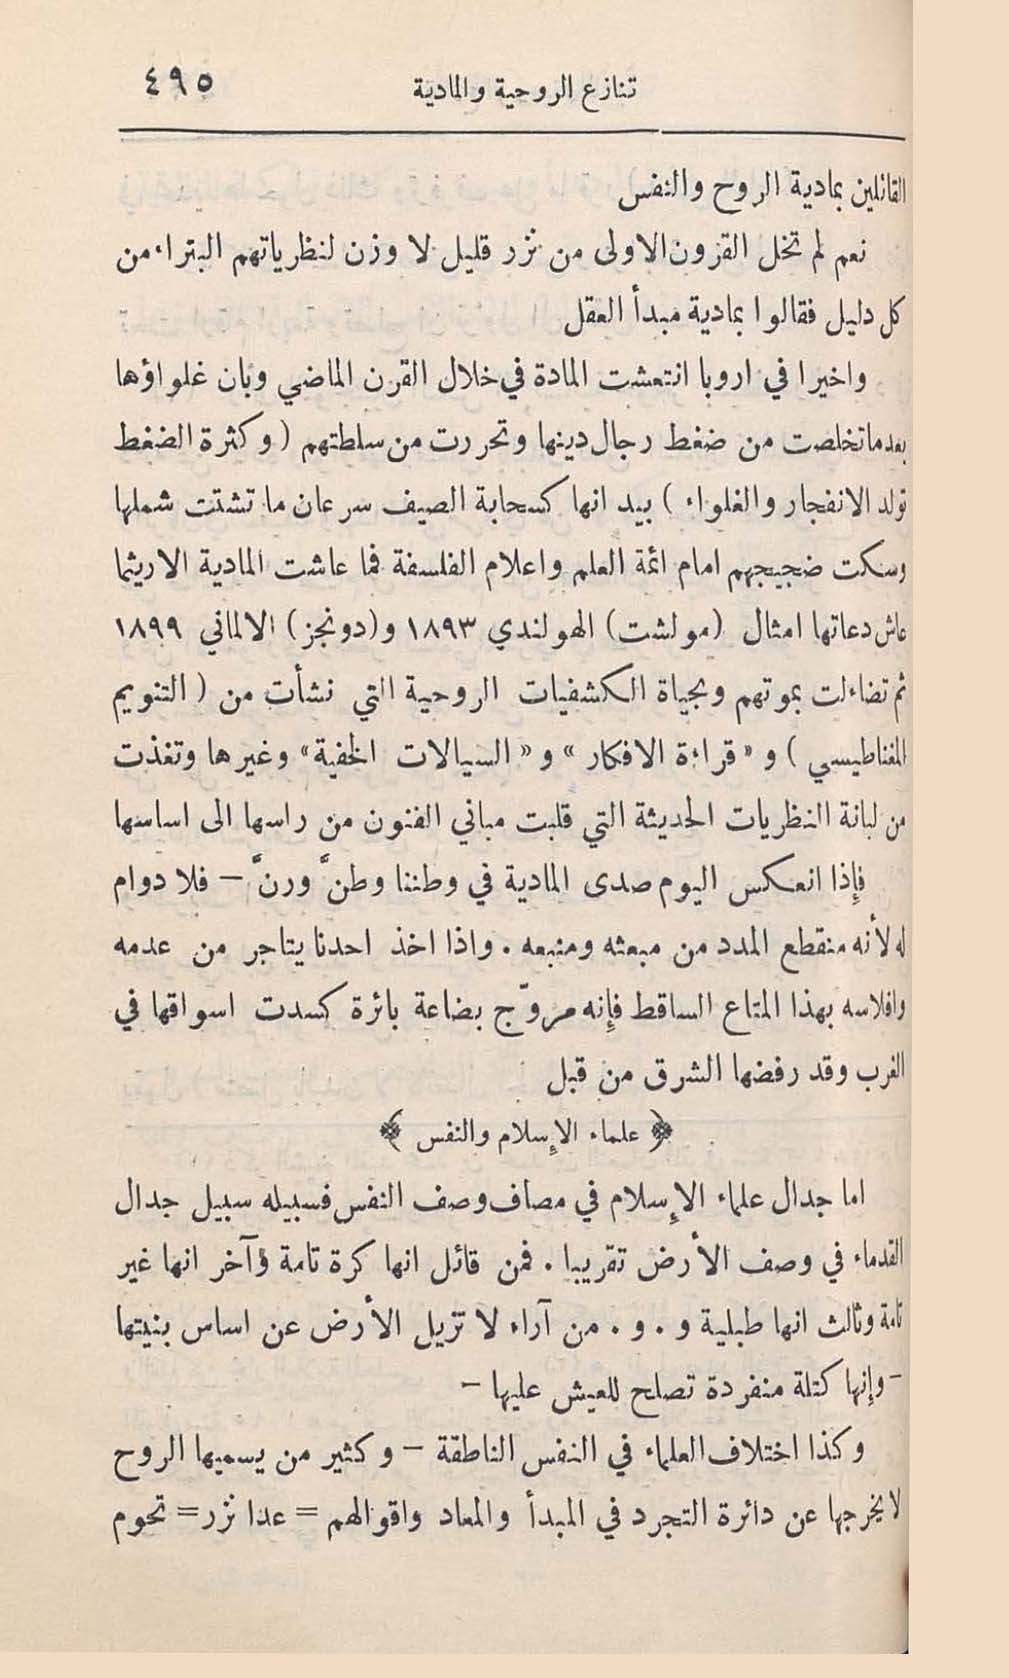 تنازع الروحية والمادية ٤٩٥
القائلين بمادية الروح والنفس
نعم لم تخل القرون الاولى من نزر قليل لا وزن لنظرياتهم البتراء من
كل دليل فقالوا بمادية مبدأ العقل
واخيرا في اروبا انتعشت المادة في خلال القرن الماضي وبان غلواؤها
بعدما تخلصت من ضغط رجال دينها وتحررت من سلطتهم ( وكثرة الضغط
تولد الانفجار والغلواء ) بيد انها كسحابة الصيف سرعان ما تشتت شملها
وسكت ضجيجهم امام ائمة العلم واعلام الفلسفة فما عاشت المادية الا ريثما
عاش دعاتها امثال (مولشت) الهولندي ١٨٩٣ و(دونجز) الالماني ١٨٩٩
ثم تضاءلت بموتهم وبحياة الكشفيات الروحية التي نشأت من ( التنويم
المغناطيسي ) و « قراءة الافكار » و « السيالات الخفية» وغيرها وتغذت
من لبانة النظريات الحديثة التي قلبت مباني الفنون من راسها الى اساسها
فإذا انعكس اليوم صدى المادية في وطننا وطنَّ ورنَّ – فلا دوام
له لأنه منقطع المدد من مبعثه ومنبعه . واذا اخذ احدنا يتاجر من عدمه
وافلاسه بهذا المتاع الساقط فإنه مروّج بضاعة بائرة كسدت اسواقها في
الغرب وقد رفضها الشرق من قبل
﴿ علماء الإسلام والنفس ﴾
اما جدال علماء الإسلام في مصاف وصف النفس فسبيله سبيل جدال
القدماء في وصف الأرض تقريبا . فمن قائل انها كرة تامة وآخر انها غير
تامة وثالث انها طبلية و . و . من آراء لا تزيل الأرض عن اساس بنيتها
– وإنها كتلة منفردة تصلح للعيش عليها –
وكذا اختلاف العلماء في النفس الناطقة – وكثير من يسميها الروح
لا يخرجها عن دائرة التجرد في المبدأ والمعاد واقوالهم = عدا نزر = تحوم